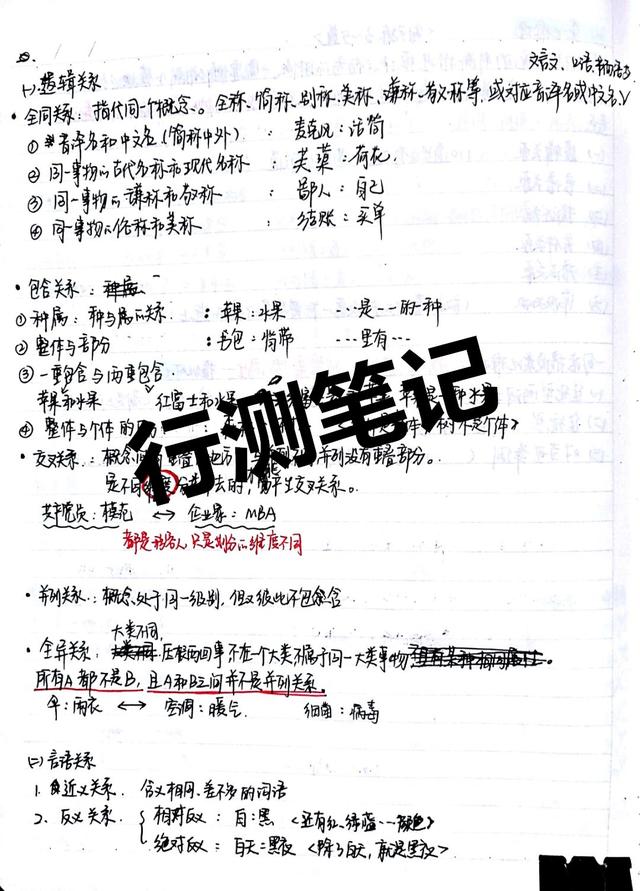 文言文、口语、书面语
(一) 逻辑关系
• 全同关系：指代同一个概念。全称、简称、别称、美称、谦称、敬称等，或对应音译名或中文名
① 音译名和中文名（简称中外） 麦克风：话筒
② 同一事物的古代名称和现代名称 芙蕖：荷花
③ 同一事物的谦称和敬称 鄙人：自己
④ 同一事物的俗称和美称 结账：买单
• 包含关系：种属
① 种属：种与属的关系 ：苹果：水果 …是…的一种
② 整体与部分 ：书包：背带 …里有…
③ 一重包含与两重包含
苹果和水果 红富士和水果
④ 整体与个体的
行测笔记
• 交叉关系：概念间有重叠地方，并列没有重叠部分。
是不同维度 的，属于交叉关系。
共产党员：模范 ↔ 企业家：MBA
都是 人 只是划分的维度不同
• 并列关系：概念处于同一级别，但又彼此不包含
大类不同，
• 全异关系： 压根两回事 不在一个大类 不属于同一大类事物
所有A都不是B，且A和B之间并不是并列关系。
伞：雨衣 ↔ 空调：暖气 细菌：病毒
(二) 言语关系
1. 近义关系. 含义相同、差不多的词语
2. 反义关系. { 相对反义：白：黑 <还有红、绿蓝…颜色>
绝对反义：白天：黑夜 <除了白天，就是黑夜>